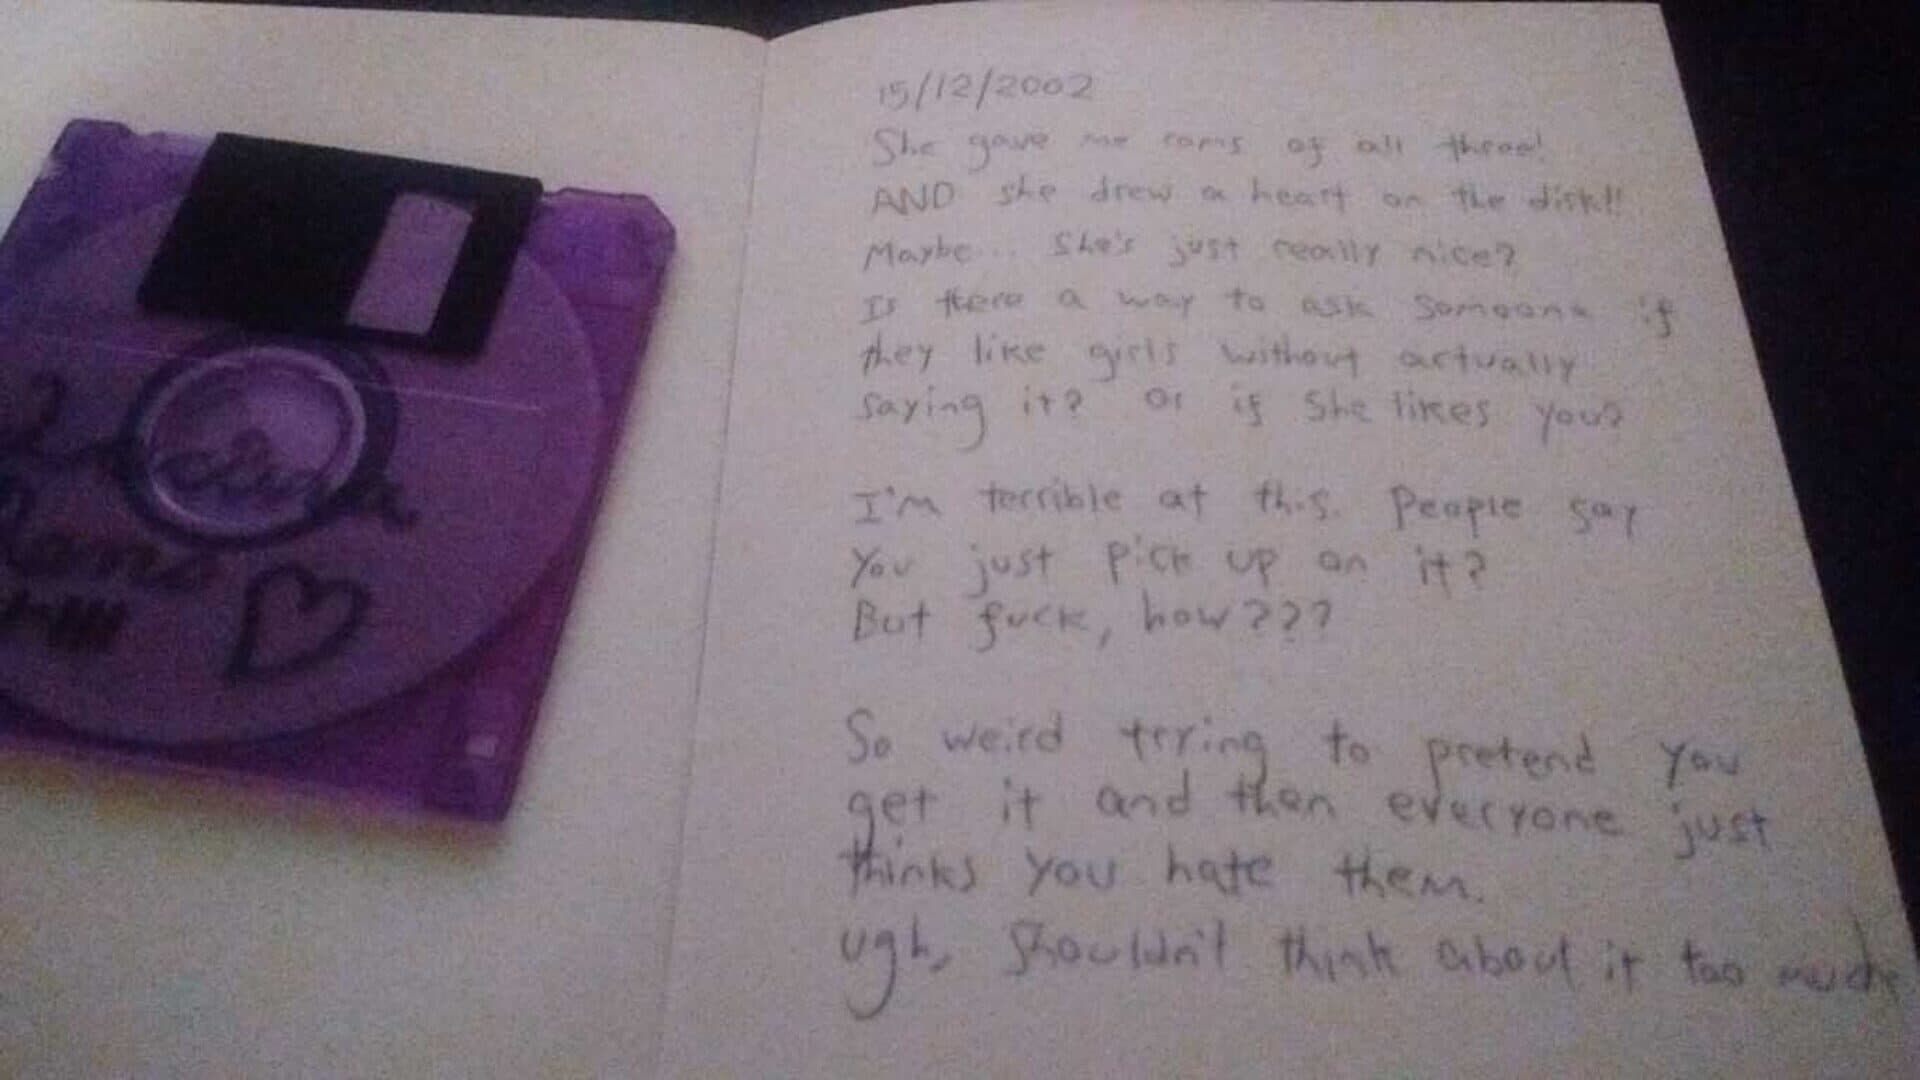 Roms
15/12/2002
She gave me roms of all three!
AND she drew a heart on the disk!!
Maybe... She's just really nice?
Is there a way to ask someone if
they like girls without actually
saying it? Or if She likes you?
I'm terrible at this. People say
You just pick up on it?
But fuck, how???
So weird trying to pretend you
get it and then everyone just
thinks you hate them.
ugh, Shouldn't think about it too much